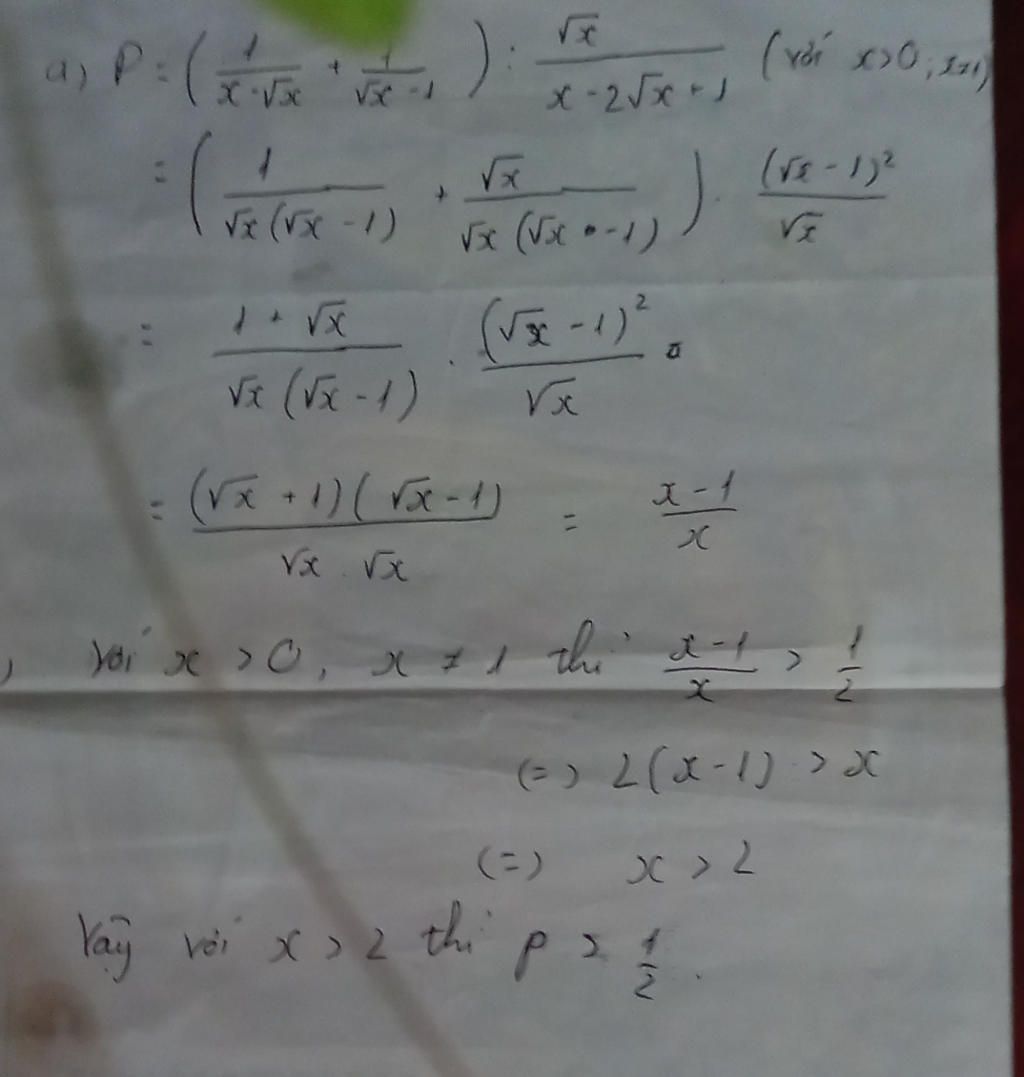 a) P = ( 1/(x - √x) + 1/(√x - 1) ) : √x/(x - 2√x + 1) (với x > 0 ; x ≠ 1)
= ( 1/(√x(√x - 1)) + √x/(√x(√x - 1)) ) . (√x - 1)²/√x
= (1 + √x)/(√x(√x - 1)) . (√x - 1)²/√x
= (√x + 1)(√x - 1)/(√x . √x) = (x - 1)/x
) Với x > 0, x ≠ 1 thì (x - 1)/x > 1/2
(=) 2(x - 1) > x
(=) x > 2
Vậy với x > 2 thì P > 1/2.